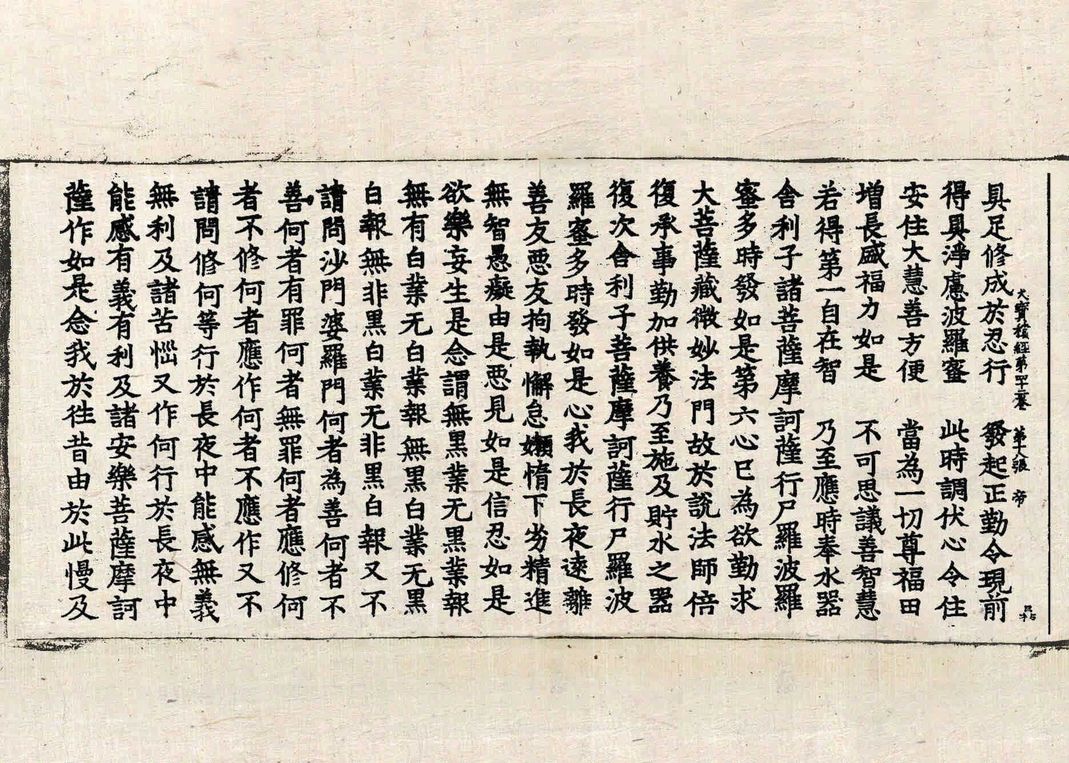 大寶積經第 卷 第 張 帝
具足修成於忍行 發起正勤令現前
得具淨慮波羅蜜 此時調伏心令住
安住大慧善方便 當為一切尊福田
增長盛福力如是 不可思議善智慧
若得第一自在智 乃至應時奉水器
舍利子諸菩薩摩訶薩行尸羅波羅
蜜多時發如是第六心已為欲勤求
大菩薩藏微妙法門故於說法師倍
復承事勤加供養乃至施及貯水之器
復次舍利子菩薩摩訶薩行尸羅波
羅蜜多時發如是心我於長夜遠離
善友悪友拘執懈怠嬾惰下劣精進
無智愚癡由是悪見如是信忍如是
欲樂妄生是念謂無黒業无黒業報
無有白業无白業報無黒白業无黒
白報無非黒白業无非黒白報又不
請問沙門婆羅門何者為善何者不
善何者有罪何者無罪何者應修何
者不修何者應作何者不應作又不
請問修何等行於長夜中能感無義
無利及諸苦惱又作何行於長夜中
能感有義有利及諸安樂菩薩摩訶
薩作如是念我於往昔由於此慢及